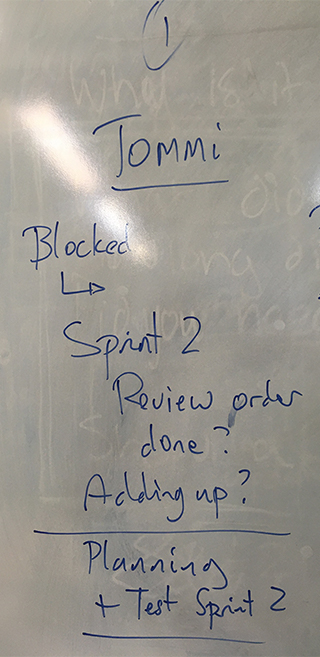 1
Tommi
Blocked
↳
Sprint 2
Review order
done?
Adding up?
Planning
+ Test Sprint 2